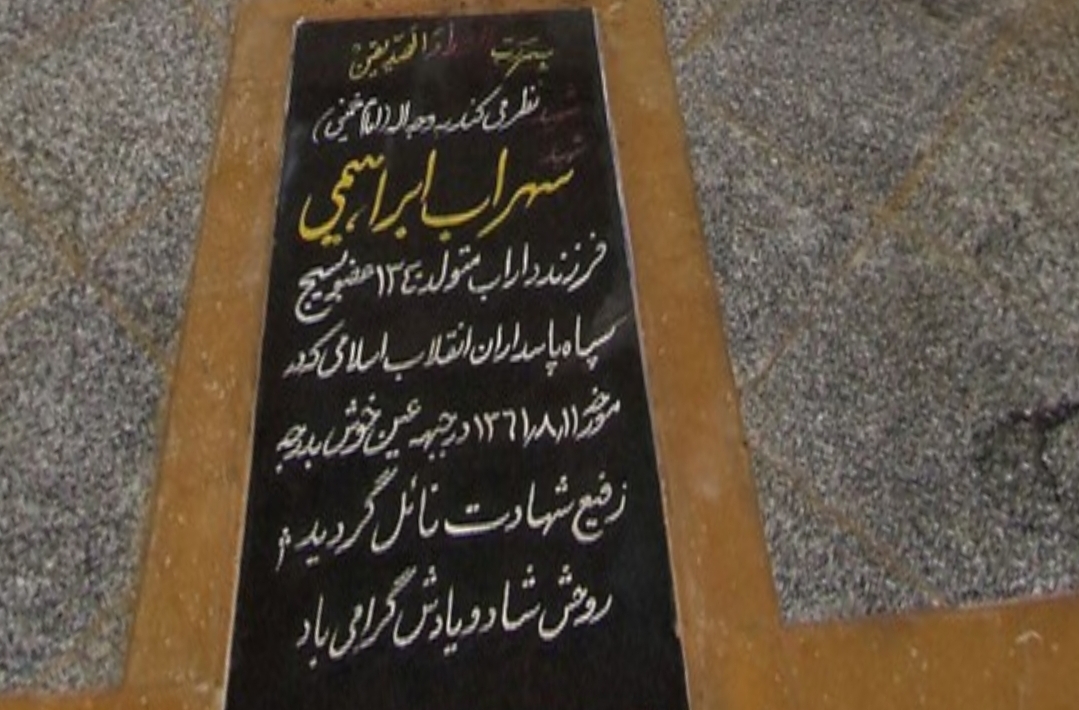 والصدیقین
شهید نظر می کند به وجه الله (امام خمینی)
شهید
سهراب ابراهیمی
فرزند داراب متولد ۱۳۴۰ عضو بسیج
سپاه پاسداران انقلاب اسلامی که در
مورخه ۱۳۶۱٫۸٫۱۱ در جبهه عین خوش بدرجه
رفیع شهادت نائل گردید
روحش شاد و یادش گرامی باد